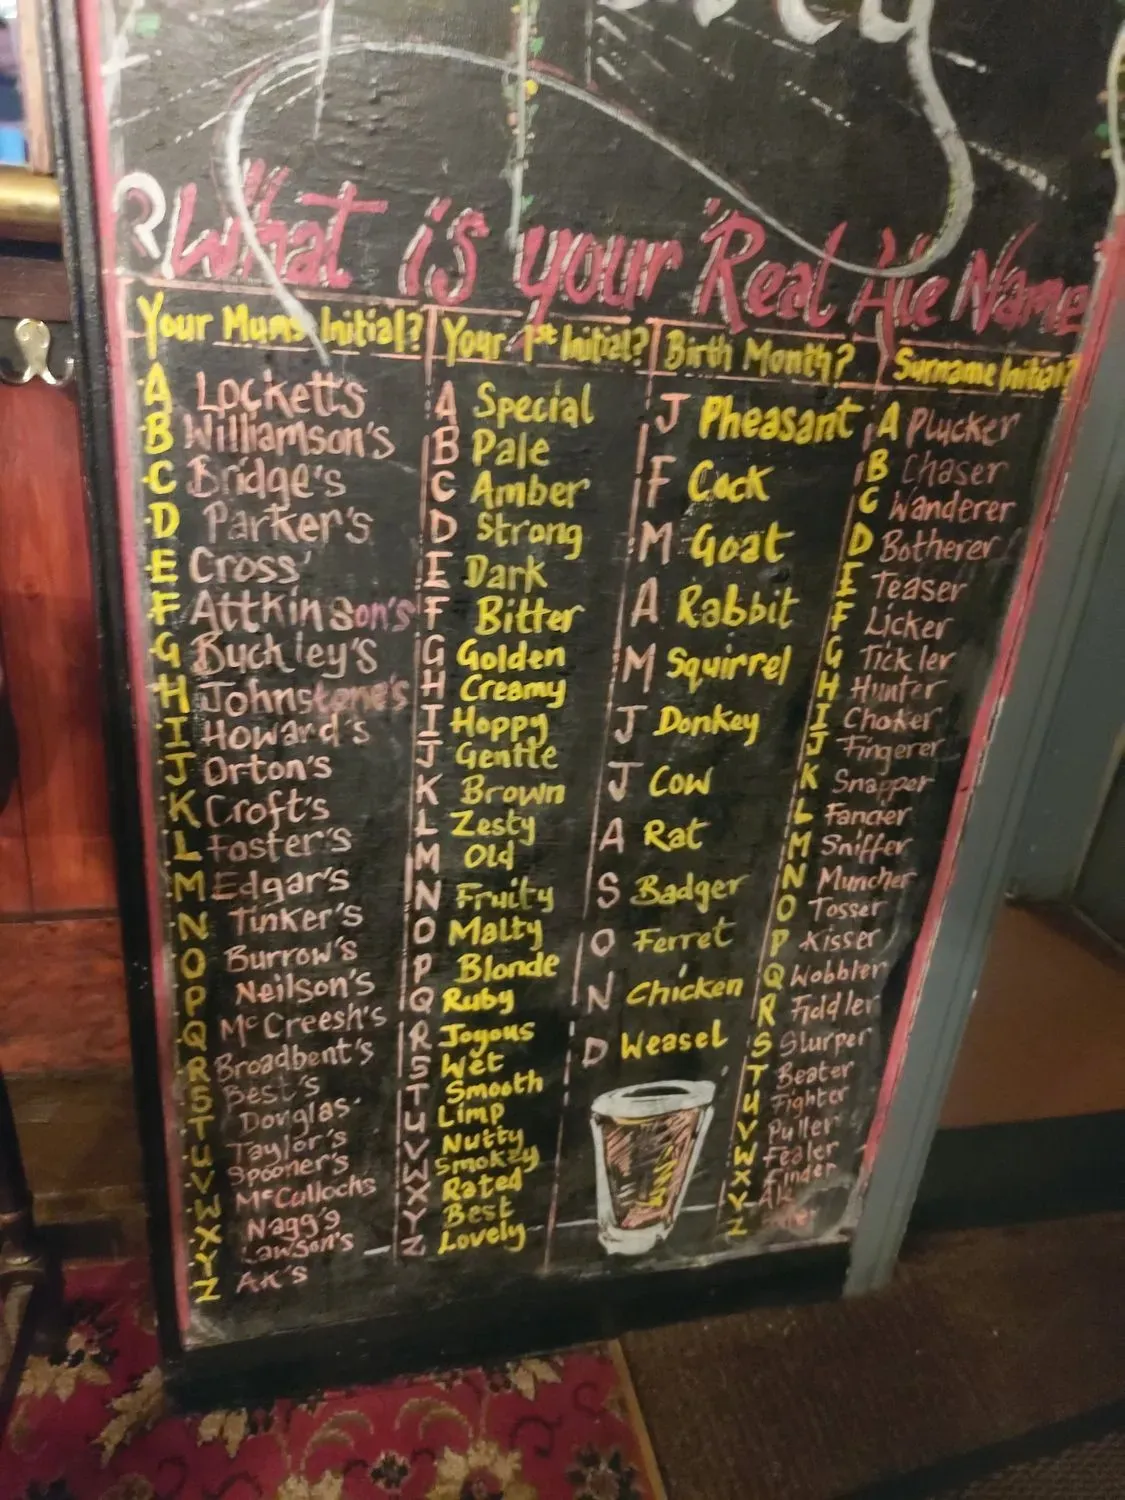 What is your Real Ale Name
Your Mums Initial? Your 1st Initial? Birth Month? Surname Initial?
A Lockett's A Special J Pheasant A Plucker
B Williamson's B Pale F Cock B Chaser
C Bridge's C Amber M Goat C Wanderer
D Parker's D Strong A Rabbit D Botherer
E Cross' E Dark M Squirrel E Teaser
F Attkinson's F Bitter J Donkey F Licker
G Buckley's G Golden J Cow G Tickler
H Johnstone's H Creamy A Rat H Hunter
I Howard's I Hoppy S Badger I Choker
J Orton's J Gentle O Ferret J Fingerer
K Croft's K Brown N Chicken K Snapper
L Foster's L Zesty D Weasel L Fancier
M Edgar's M Old M Sniffer
N Tinker's N Fruity N Muncher
O Burrow's O Malty O Tosser
P Neilson's P Blonde P Kisser
Q McCreesh's Q Ruby Q Wobbler
R Broadbent's R Joyous R Fiddler
S Best's S Wet S Slurper
T Douglas' T Smooth T Beater
U Taylor's U Limp U Fighter
V Spooner's V Nutty V Puller
W McCullochs W Smokey W Fealer
X Nagg's X Rated X Finder
Y Lawson's Y Best Y
Z Ak's Z Lovely Z